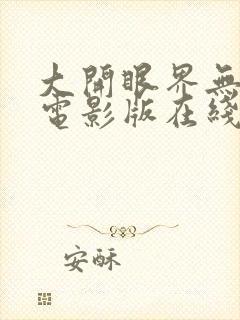 大開眼界無
電影版在綫
安酥